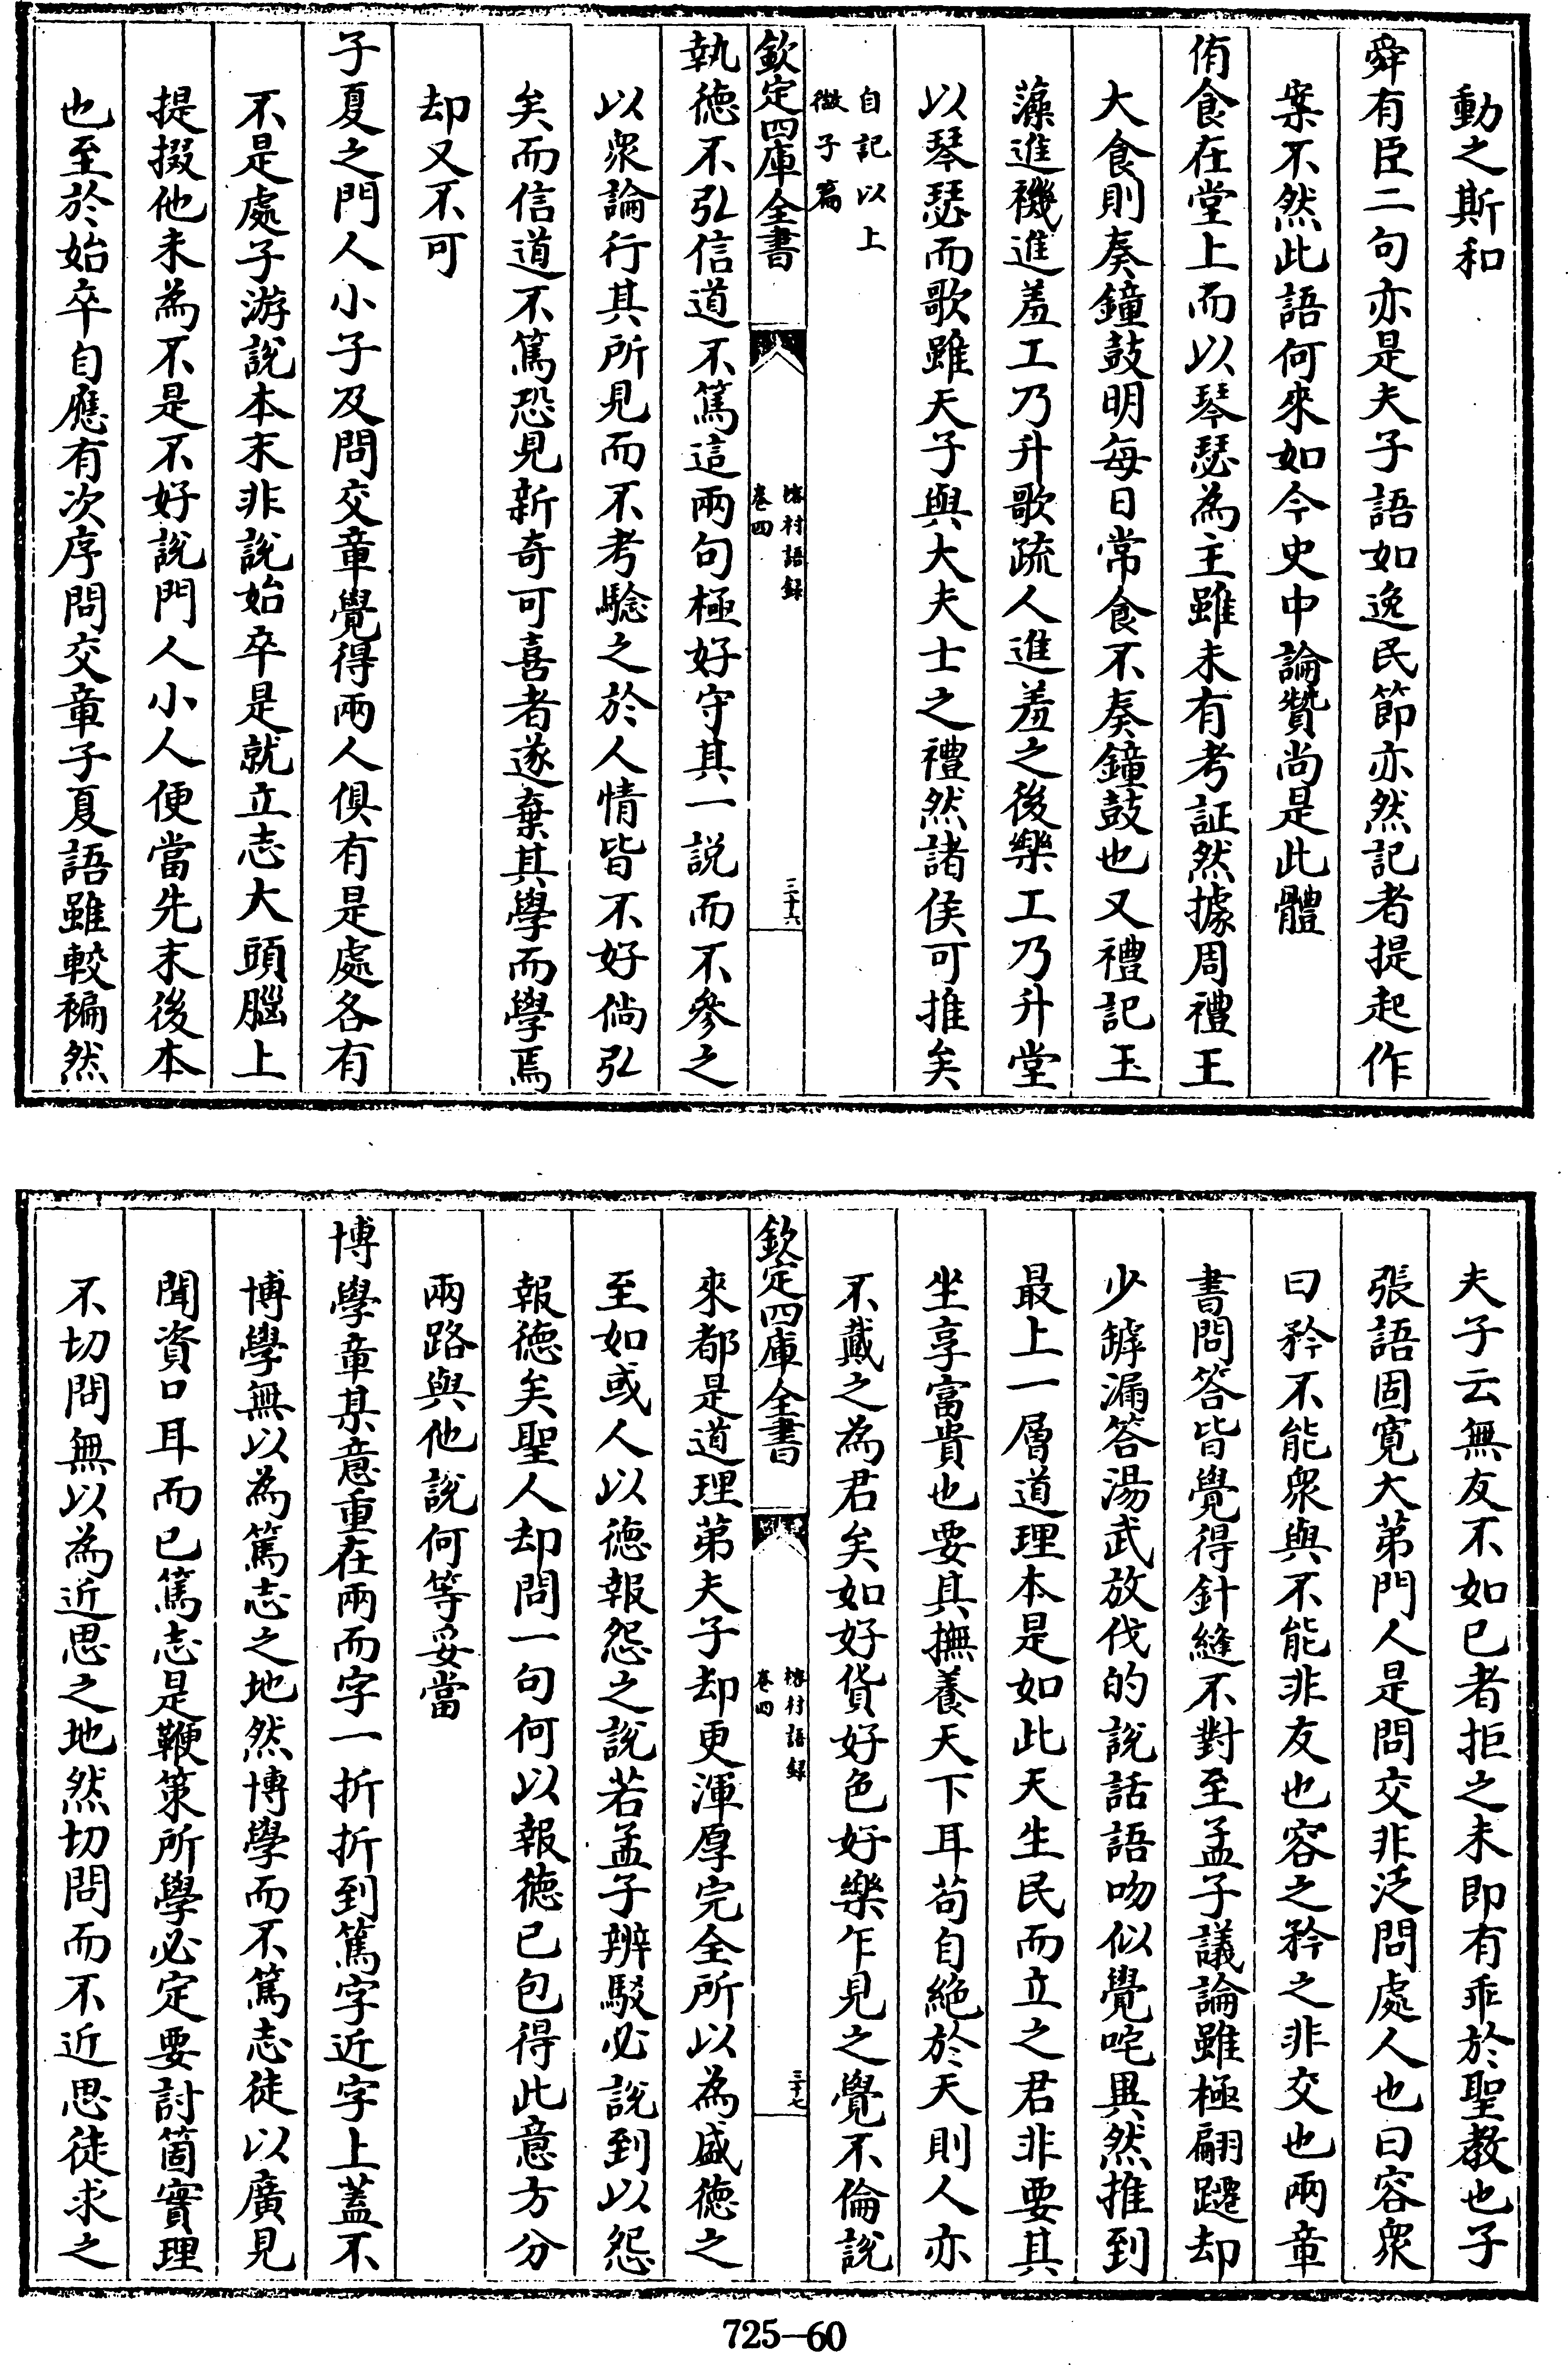 動之斯和
舜有臣二句亦是夫子語如逸民節亦然記者提起作
案不然此語何來如今史中論贊尚是此體
侑食在堂上而以琴瑟為主雖未有考証然據周禮王
大食則奏鐘鼓明每日常食不奏鐘鼓也又禮記玉
藻進禨進羞工乃升歌疏人進羞之後樂工乃升堂
以琴瑟而歌雖天子與大夫士之禮然諸侯可推矣
自記以上
微子篇
欽定四庫全書
榕村語録
卷四
三十六
執德不弘信道不篤這兩句極好守其一說而不參之
以衆論行其所見而不考騐之於人情皆不好倘弘
矣而信道不篤恐見新奇可喜者遂棄其學而學焉
却又不可
子夏之門人小子及問交章覺得兩人俱有是處各有
不是處子游說本末非說始卒是就立志大頭腦上
提掇他未為不是不好說門人小人便當先末後本
也至於始卒自應有次序問交章子夏語雖較褊然
夫子云無友不如已者拒之未即有乖於聖教也子
張語固寛大第門人是問交非泛問處人也曰容衆
曰矜不能衆與不能非友也容之矜之非交也兩章
書問答皆覺得針縫不對至孟子議論雖極翩躚却
少罅漏答湯武放伐的說話語吻似覺咤異然推到
最上一層道理本是如此天生民而立之君非要其
坐享富貴也要其撫養天下耳苟自絕於天則人亦
不戴之為君矣如好貨好色好樂乍見之覺不倫說
欽定四庫全書
榕村語録
卷四
三十七
來都是道理第夫子却更渾厚完全所以為盛德之
至如或人以德報怨之說若孟子辨駁必說到以怨
報德矣聖人却問一句何以報德已包得此意方分
兩路與他說何等妥當
博學章某意重在兩而字一折折到篤字近字上蓋不
博學無以為篤志之地然博學而不篤志徒以廣見
聞資口耳而已篤志是鞭策所學必定要討箇實理
不切問無以為近思之地然切問而不近思徒求之
725—60